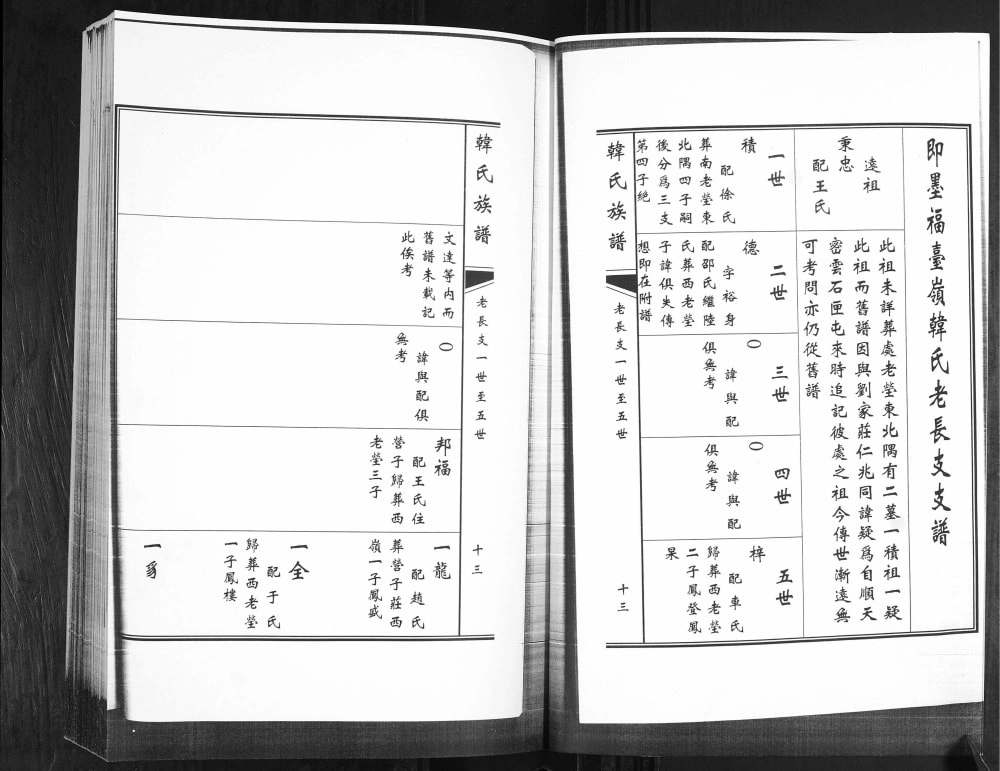 即墨福臺嶺韓氏老長支支譜
遠祖
秉忠
配王氏
此祖未詳葬處老塋東北隅有二墓一積祖一疑
此祖而舊譜因與劉家莊仁兆同諱疑爲自順天
密雲石匣屯來時追記彼處之祖今傳世漸遠無
可考問亦仍從舊譜
一世
積
配徐氏
葬南老塋東
北隅四子嗣
後分爲三支
第四子絕
二世
德
字裕身
配邵氏繼陸
氏葬西老塋
子諱俱失傳
想即在附譜
三世
○
諱與配
俱無考
四世
○
諱與配
俱無考
五世
梓
配車氏
歸葬西老塋
二子鳳登鳳
杲
韓氏族譜
老長支一世至五世
十三
韓氏族譜
老長支一世至五世
十三
文達等內而
舊譜未載記
此俟考
○
諱與配俱
無考
邦福
配王氏住
營子歸葬西
老塋三子
一龍
配趙氏
葬營子莊西
嶺一子鳳盛
一全
配于氏
歸葬西老塋
一子鳳樓
一豸